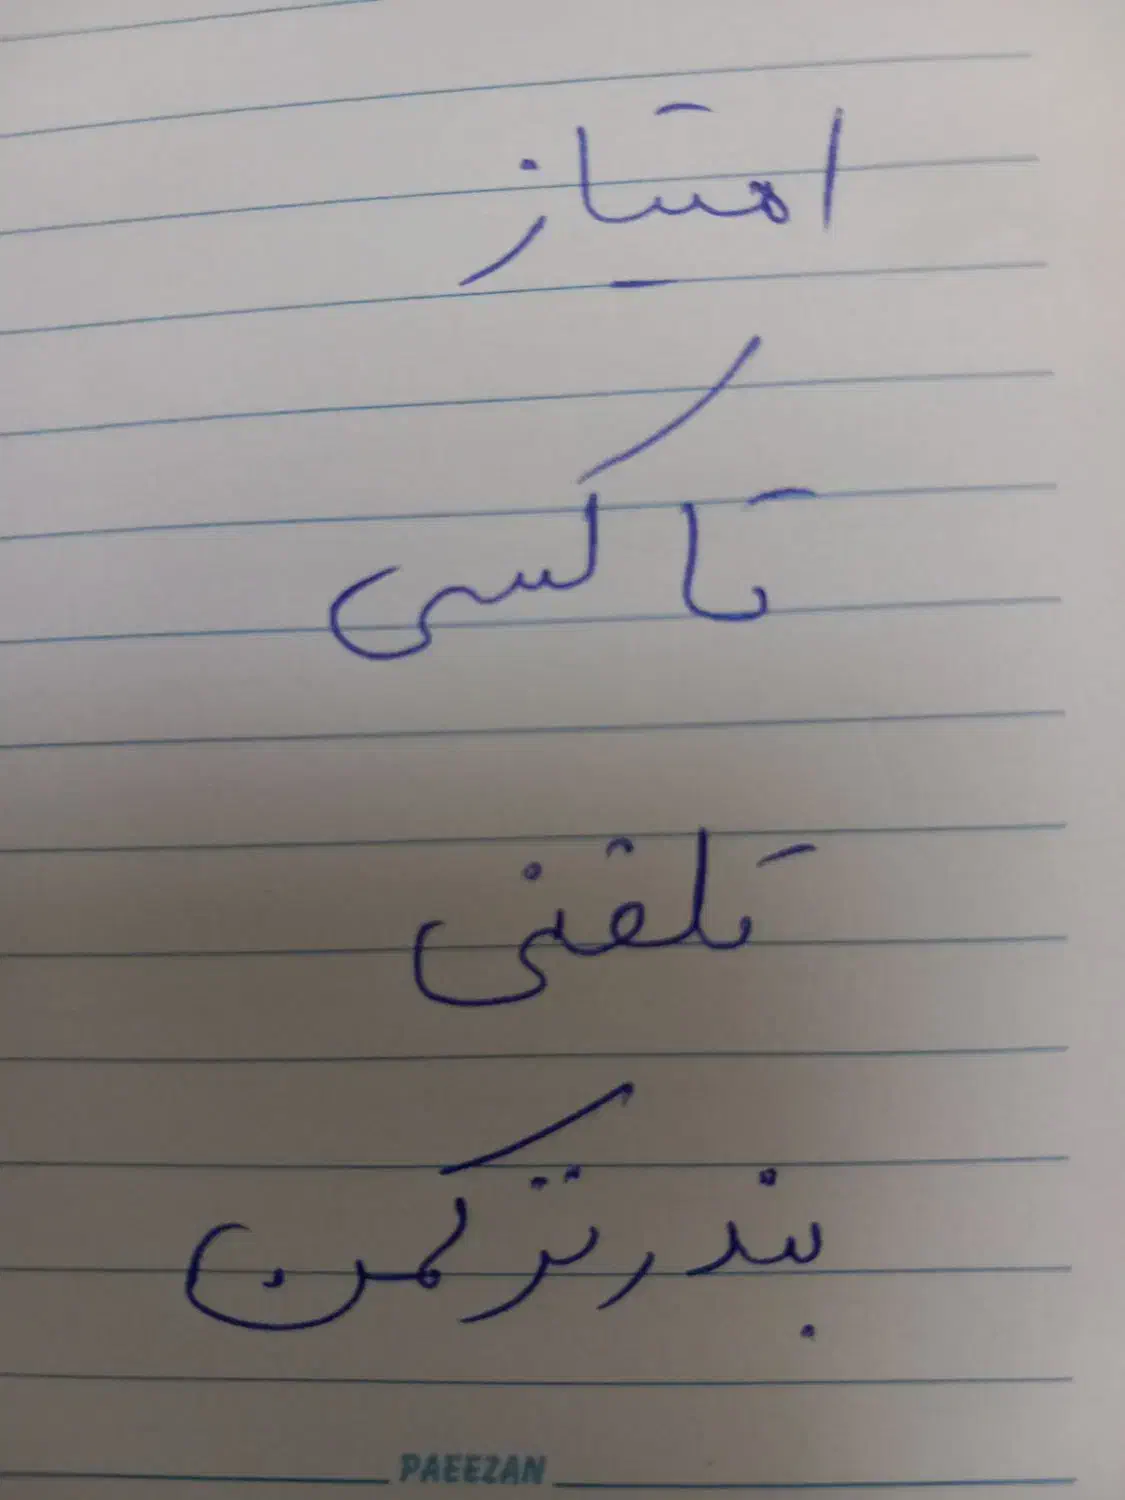 امتیاز
تاکسی
تلقنی
بندر ترکمن
PAEEZAN